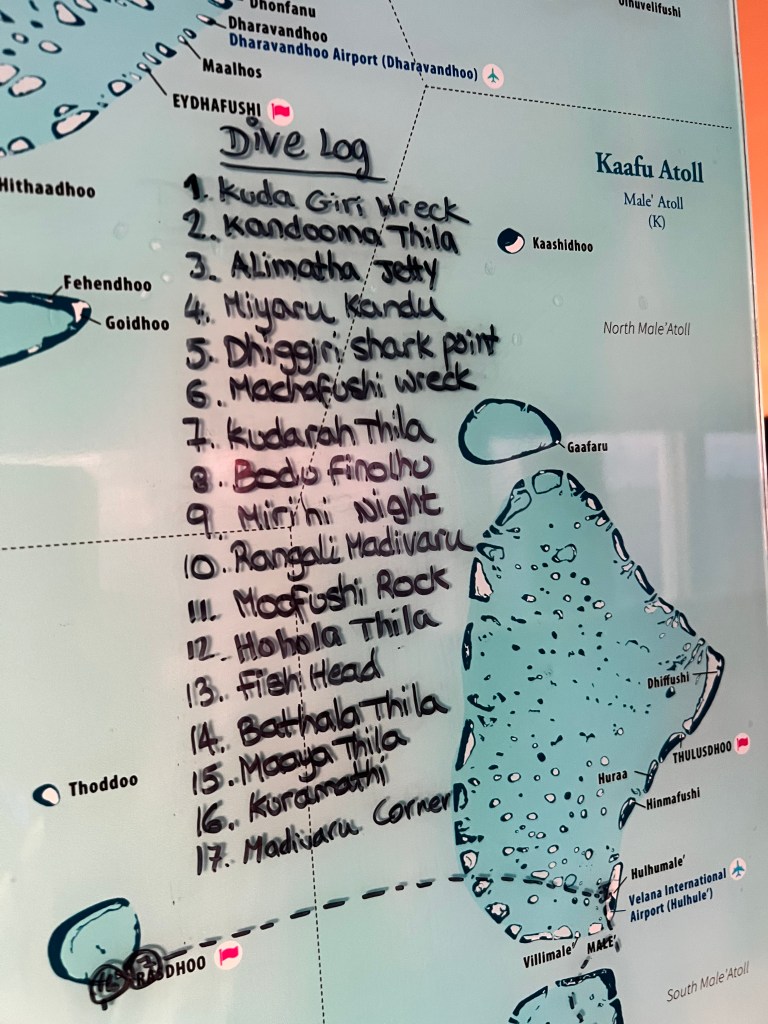 Dhonfanu
Dharavandhoo
Dharavandhoo Airport (Dharavandhoo)
Maalhos
EYDHAFUSHI
Hithaadhoo
Fehendhoo
Goidhoo
Olhuvelifushi
Kaafu Atoll
Male' Atoll
(K)
Kaashidhoo
North Male'Atoll
Dive Log
1. Kuda Giri Wreck
2. Kandooma Thila
3. Alimatha Jetty
4. Miyaru Kandu
5. Dhiggiri shark point
6. Machafushi wreck
7. Kudarah Thila
8. Bodu Finolhu
9. Mirihi Night
10. Rangali Madivaru
11. Moofushi Rock
12. Hohola Thila
13. Fish Head
14. Bathala Thila
15. Maaya Thila
16. Kuramathi
17. Madivaru Corner
Gaafaru
Dhiffushi
THULUSDHOO
Huraa
Hinmafushi
Thoddoo
Hulhumale'
Velana International
Airport (Hulhule')
Villimale'
MALE'
RASDHOO
South Male'Atoll